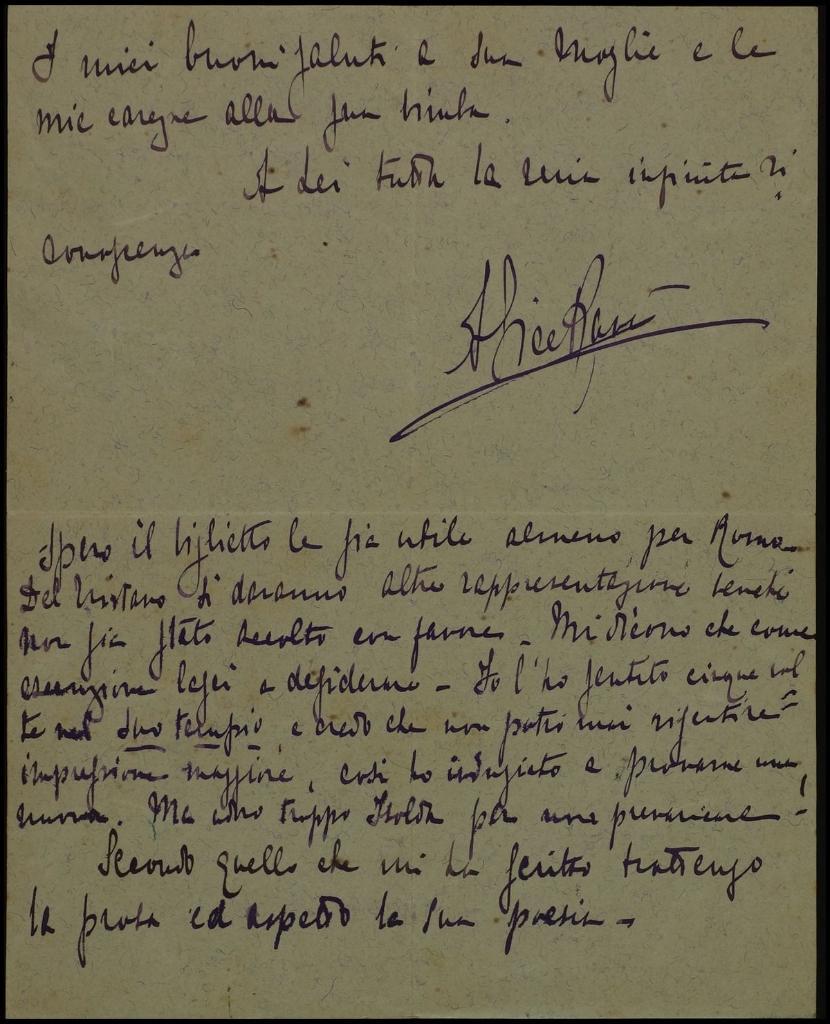 I miei buoni saluti a sua moglie e le
mie carezze alla sua bimba.
A Lei tutta la mia infinita ri
conoscenza
Alice
Spero il biglietto le sia utile almeno per Roma
Del Tristano si daranno altre rappresentazione benchè
non sia stato accolto con favore – Mi dicono che come
esecuzione lasci a desiderare – Io l'ho sentito cinque vol
te nel suo tempio, e credo che non potrò mai risentire
impressione maggiore, così ho indugiato a provarne una
nuova. Ma adoro troppo Isolda per non
Secondo quello che mi ha scritto trattengo
la prosa ed aspetto la sua poesia –